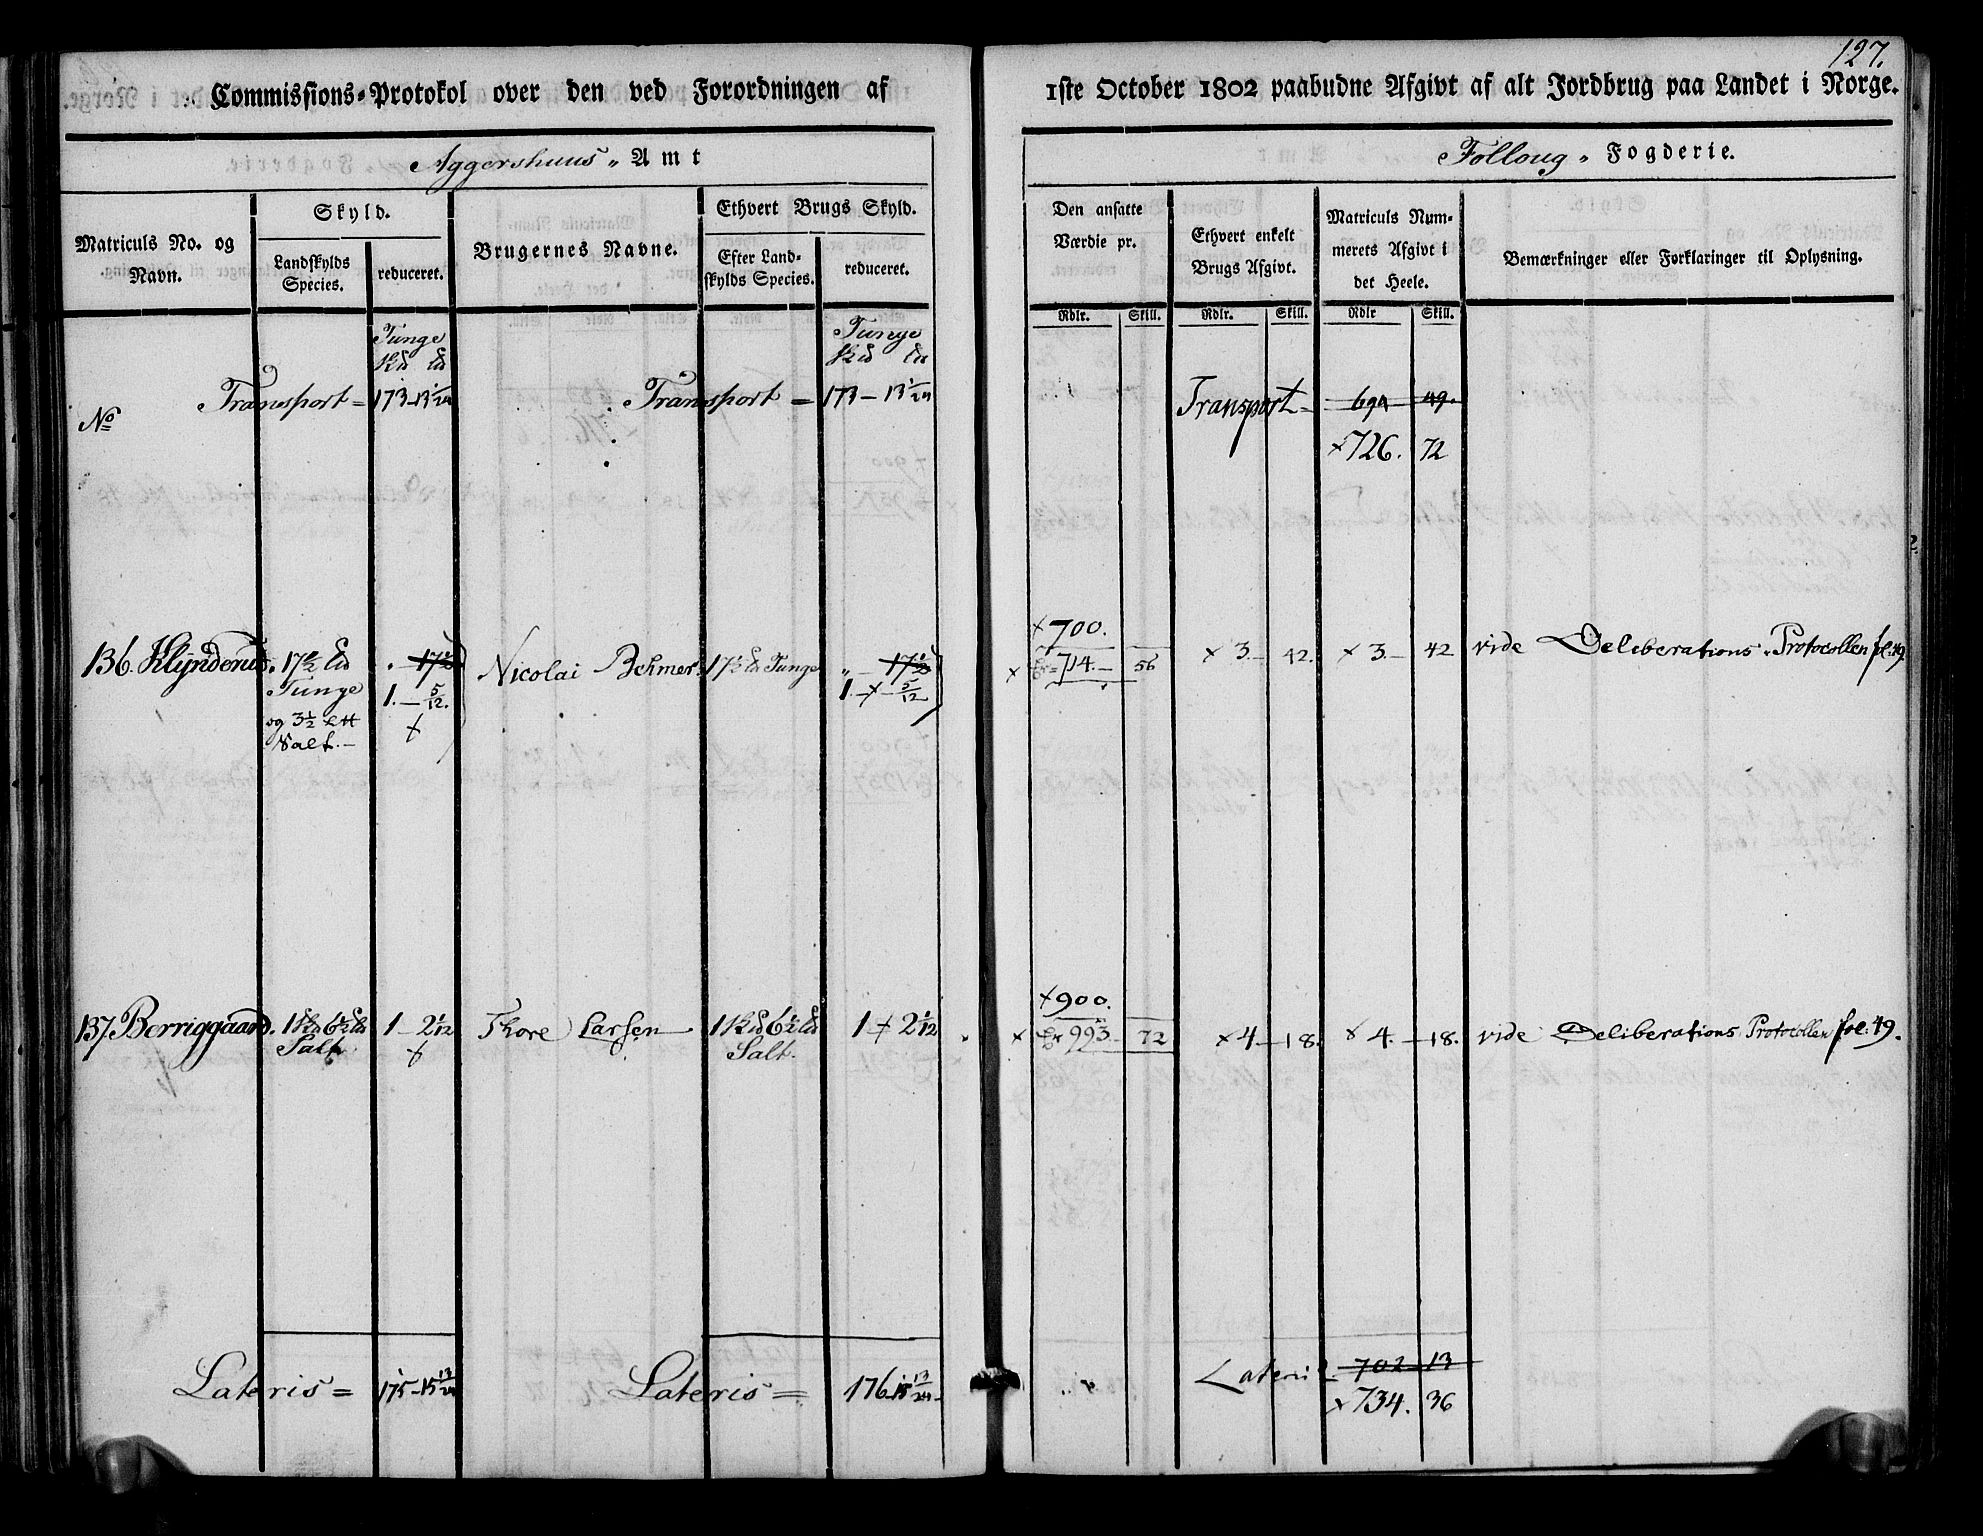 127.
Commissions-Protokol over den ved Forordningen af 1ste October 1802 paabudne Afgivt af alt Jordbrug paa Landet i Norge.
Aggershuus „ Amt
Folloug „ Fogderie.
Matriculs No. og Navn.
Skyld.
Landskylds Species.
reduceret.
Brugernes Navne.
Ethvert Brugs Skyld.
Efter Landskylds Species.
reduceret.
Den ansatte Værdie pr.
Ethvert enkelt Brugs Afgivt.
Matriculs Nummerets Afgivt i det Heele.
Bemærkninger eller Forklaringer til Oplysning.
Rdlr. Skill. Rdlr. Skill. Rdlr Skill.
Tunge
Tunge
No
Transport = 173 - 13 1/24
Transport = 173 - 13 1/24
Transport = 49.
×726. 72
×700.
136. 17 1/2 Tunge og 3 1/2 Salt.
17 1/2
1. - 5/12.
Nicolai Behmer. 17 1/2 Tunge
17 1/2
1. × 5/12
× 714. - 56
× 3. - 42. × 3. - 42 vide Deliberations Protocollen fol: 49
×900.
137. Berriggaard. 6 1/2 Salt
1 - 2 1/12
Thore Larsen 6 1/2 Salt.
1 × 2 1/12
× 993. - 72
× 4 - 18. × 4. - 18. vide Deliberations Protocollen fol: 49.
Lateris = 175 - 15 13/24
Lateris = 176 - 15 13/24
Lateris 702 - 13
×734. 36